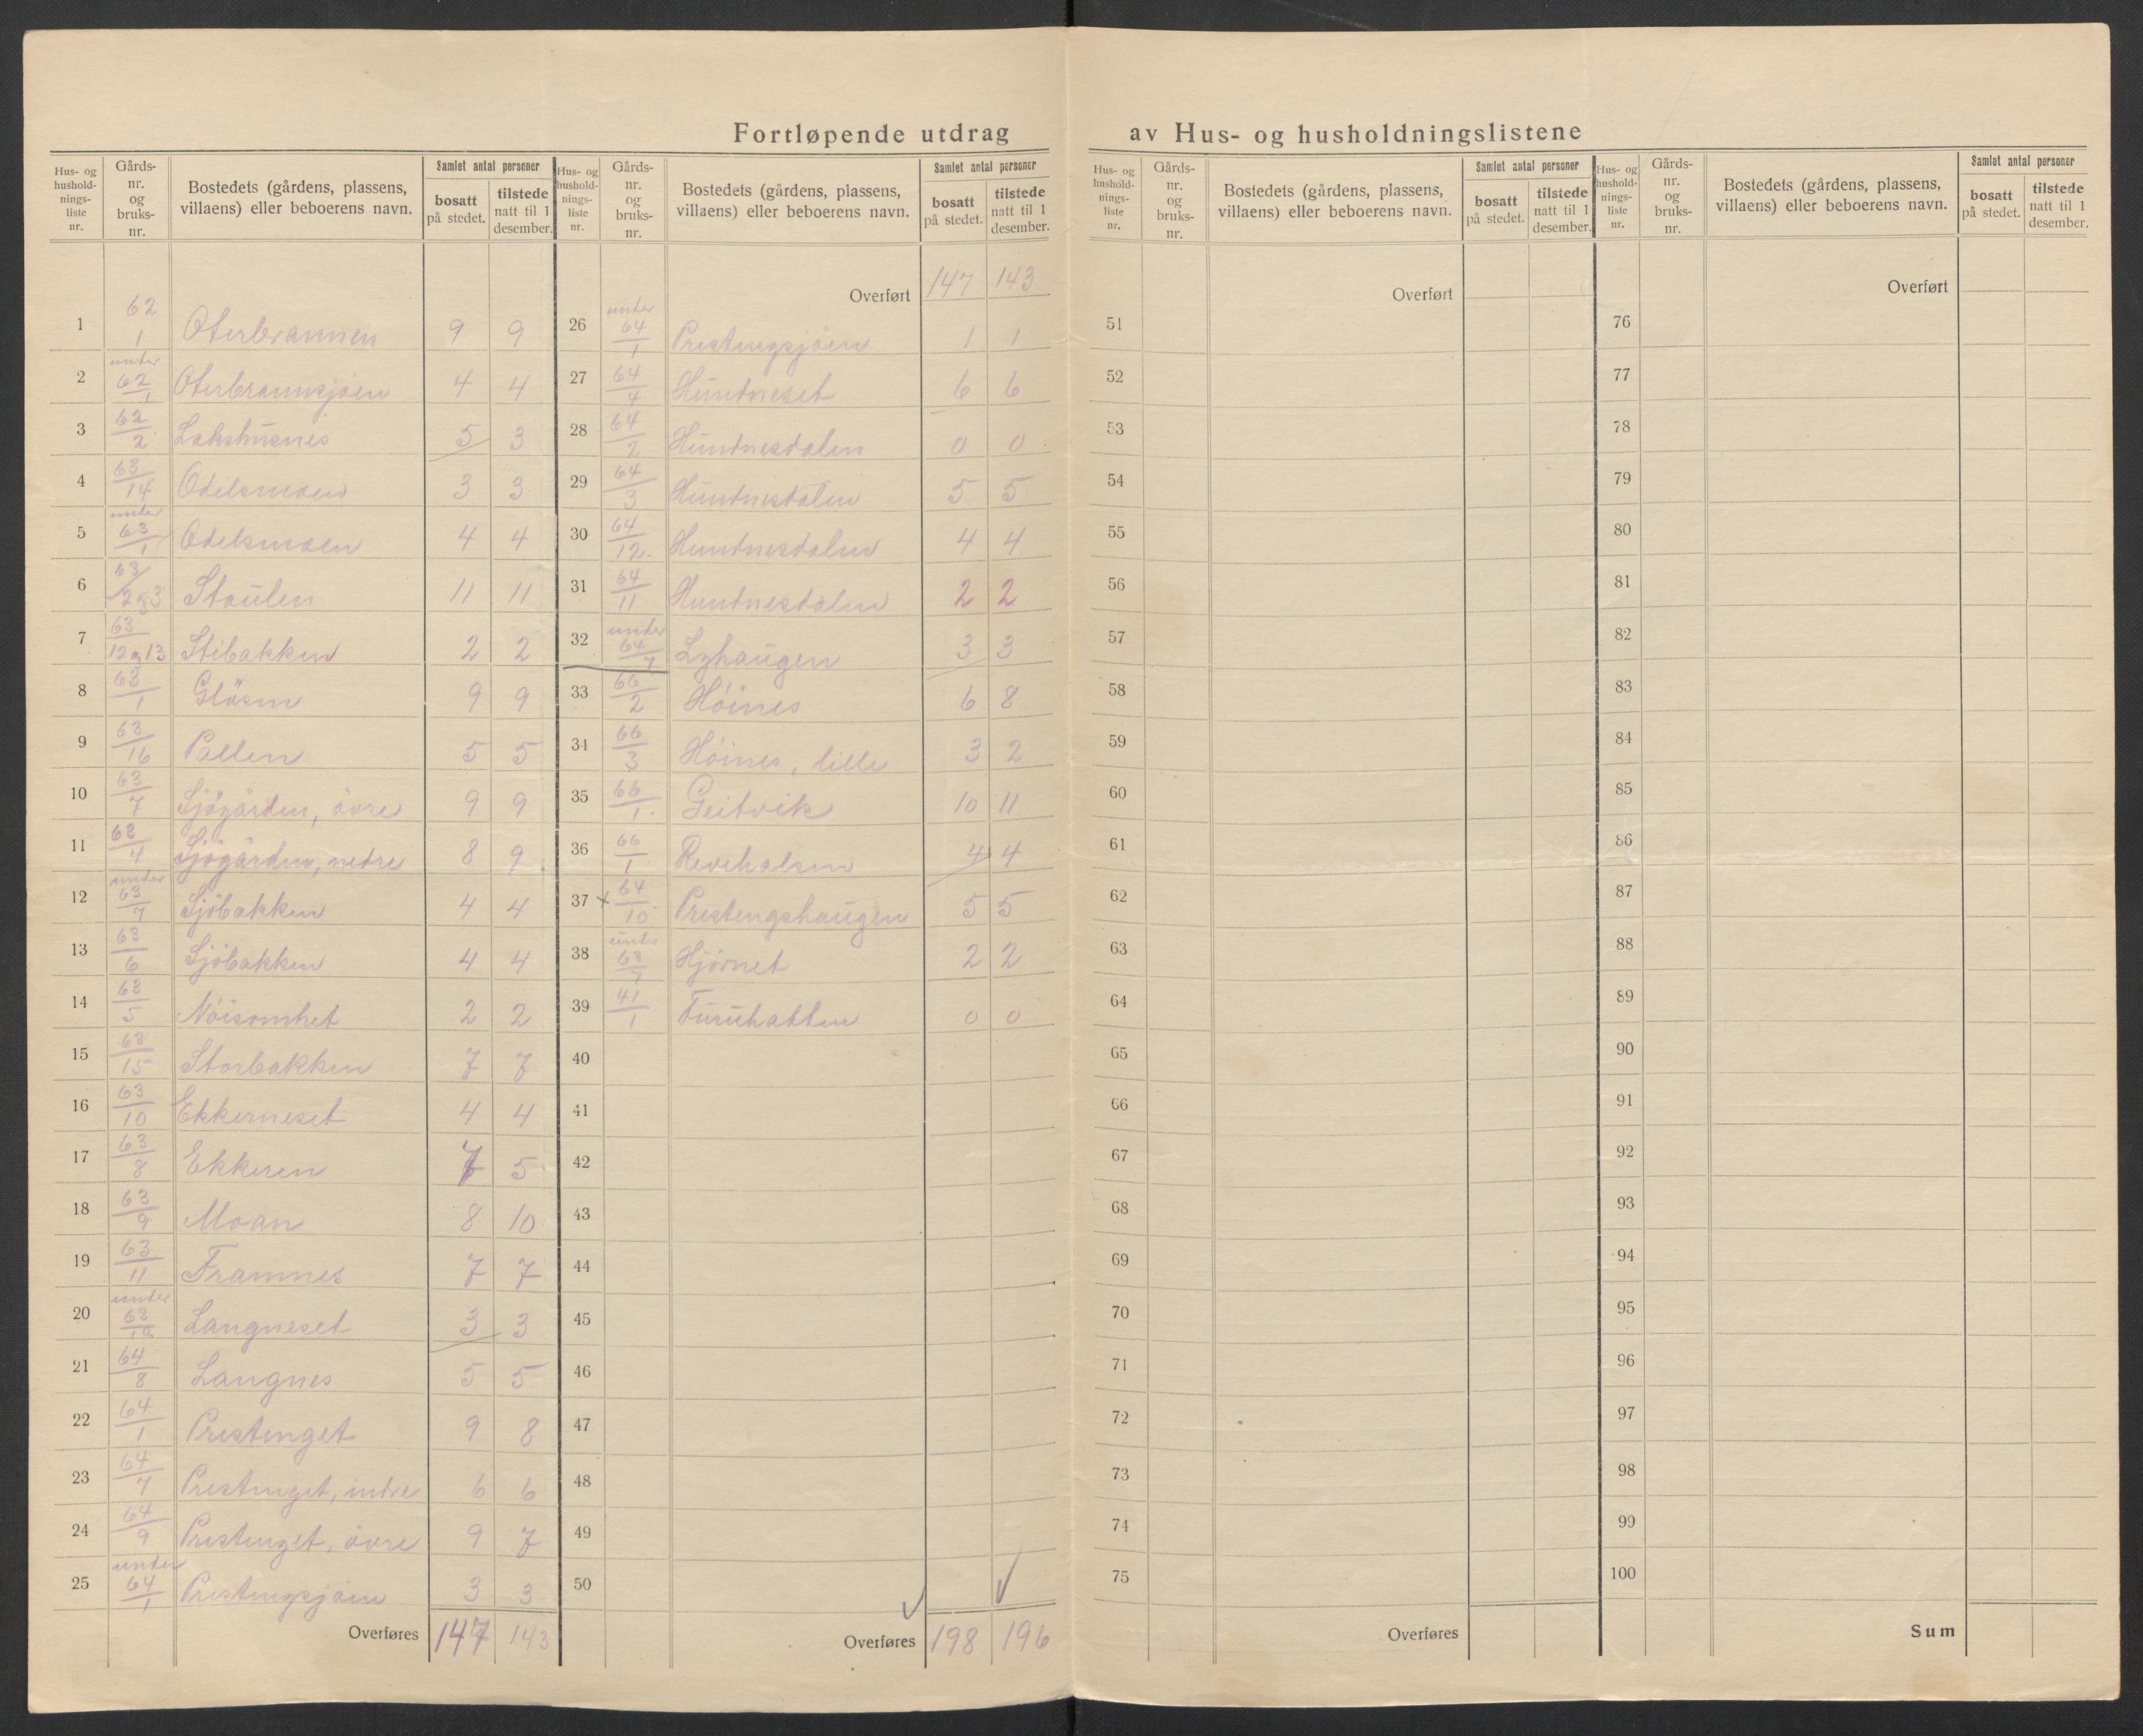 Fortløpende utdrag av Hus- og husholdningslistene
Hus- og hushold- nings- liste nr. | Gårds- nr. og bruks- nr. | Bostedets (gårdens, plassens, villaens) eller beboerens navn. | Samlet antal personer | bosatt på stedet. | tilstede natt til 1 desember.
1 | 62/1 | Oterbrannen | 9 | 9
2 | under 62/1 | Oterbrannsjøen | 4 | 4
3 | 62/2 | Lakshusnes | 5 | 3
4 | 63/14 | Odelsmoen | 3 | 3
5 | under 63/1 | Odelsmoen | 4 | 4
6 | 63/2 og 3 | Staulen | 11 | 11
7 | 63/12 og 13 | Stibakken | 2 | 2
8 | 63/1 | Glåsen | 9 | 9
9 | 63/16 | Pallen | 5 | 5
10 | 63/7 | Sjøgården, øvre | 9 | 9
11 | 63/4 | Sjøgården, nedre | 8 | 9
12 | under 63/7 | Sjöbakken | 4 | 4
13 | 63/6 | Sjöbakken | 4 | 4
14 | 63/5 | Nöisomhet | 2 | 2
15 | 63/15 | Storbakken | 7 | 7
16 | 63/10 | Ekkerneset | 4 | 4
17 | 63/8 | Ekkeren | 7 | 5
18 | 63/9 | Moan | 8 | 10
19 | 63/11 | Framnes | 7 | 7
20 | under 63/ | Langneset | 3 | 3
21 | 64/8 | Langnes | 5 | 5
22 | 64/1 | Prestenget | 9 | 8
23 | 64/7 | Prestenget, indre | 6 | 6
24 | 64/9 | Prestenget, övre | 9 | 7
25 | under 64/1 | Prestengsjøen | 3 | 3
Overføres | 147 | 143
Hus- og hushold- nings- liste nr. | Gårds- nr. og bruks- nr. | Bostedets (gårdens, plassens, villaens) eller beboerens navn. | Samlet antal personer | bosatt på stedet. | tilstede natt til 1 desember.
Overført | 147 | 143
26 | under 64/1 | Prestengsjøen | 1 | 1
27 | 64/4 | Hundneset | 6 | 6
28 | 64/2 | Hundnesdalen | 0 | 0
29 | 64/3 | Hundnesdalen | 5 | 5
30 | 64/12 | Hundnesdalen | 4 | 4
31 | 64/11 | Hundnesdalen | 2 | 2
32 | under 64/7 | Lyhaugen | 3 | 3
33 | 66/2 | Höines | 6 | 8
34 | 66/3 | Höines, lille | 3 | 2
35 | 66/1 | Geitvik | 10 | 11
36 | 66/1 | Revehalsen | 4 | 4
37 x | 64/10 | Prestengshaugen | 5 | 5
38 | under 63/7 | Hjørnet | 2 | 2
39 | 41/1 | Furuhatten | 0 | 0
40
41
42
43
44
45
46
47
48
49
50
Overføres | 198 | 196
Hus- og hushold- nings- liste nr. | Gårds- nr. og bruks- nr. | Bostedets (gårdens, plassens, villaens) eller beboerens navn. | Samlet antal personer | bosatt på stedet. | tilstede natt til 1 desember.
Overført
51
52
53
54
55
56
57
58
59
60
61
62
63
64
65
66
67
68
69
70
71
72
73
74
75
Overføres
Hus- og hushold- nings- liste nr. | Gårds- nr. og bruks- nr. | Bostedets (gårdens, plassens, villaens) eller beboerens navn. | Samlet antal personer | bosatt på stedet. | tilstede natt til 1 desember.
Overført
76
77
78
79
80
81
82
83
84
85
86
87
88
89
90
91
92
93
94
95
96
97
98
99
100
Sum